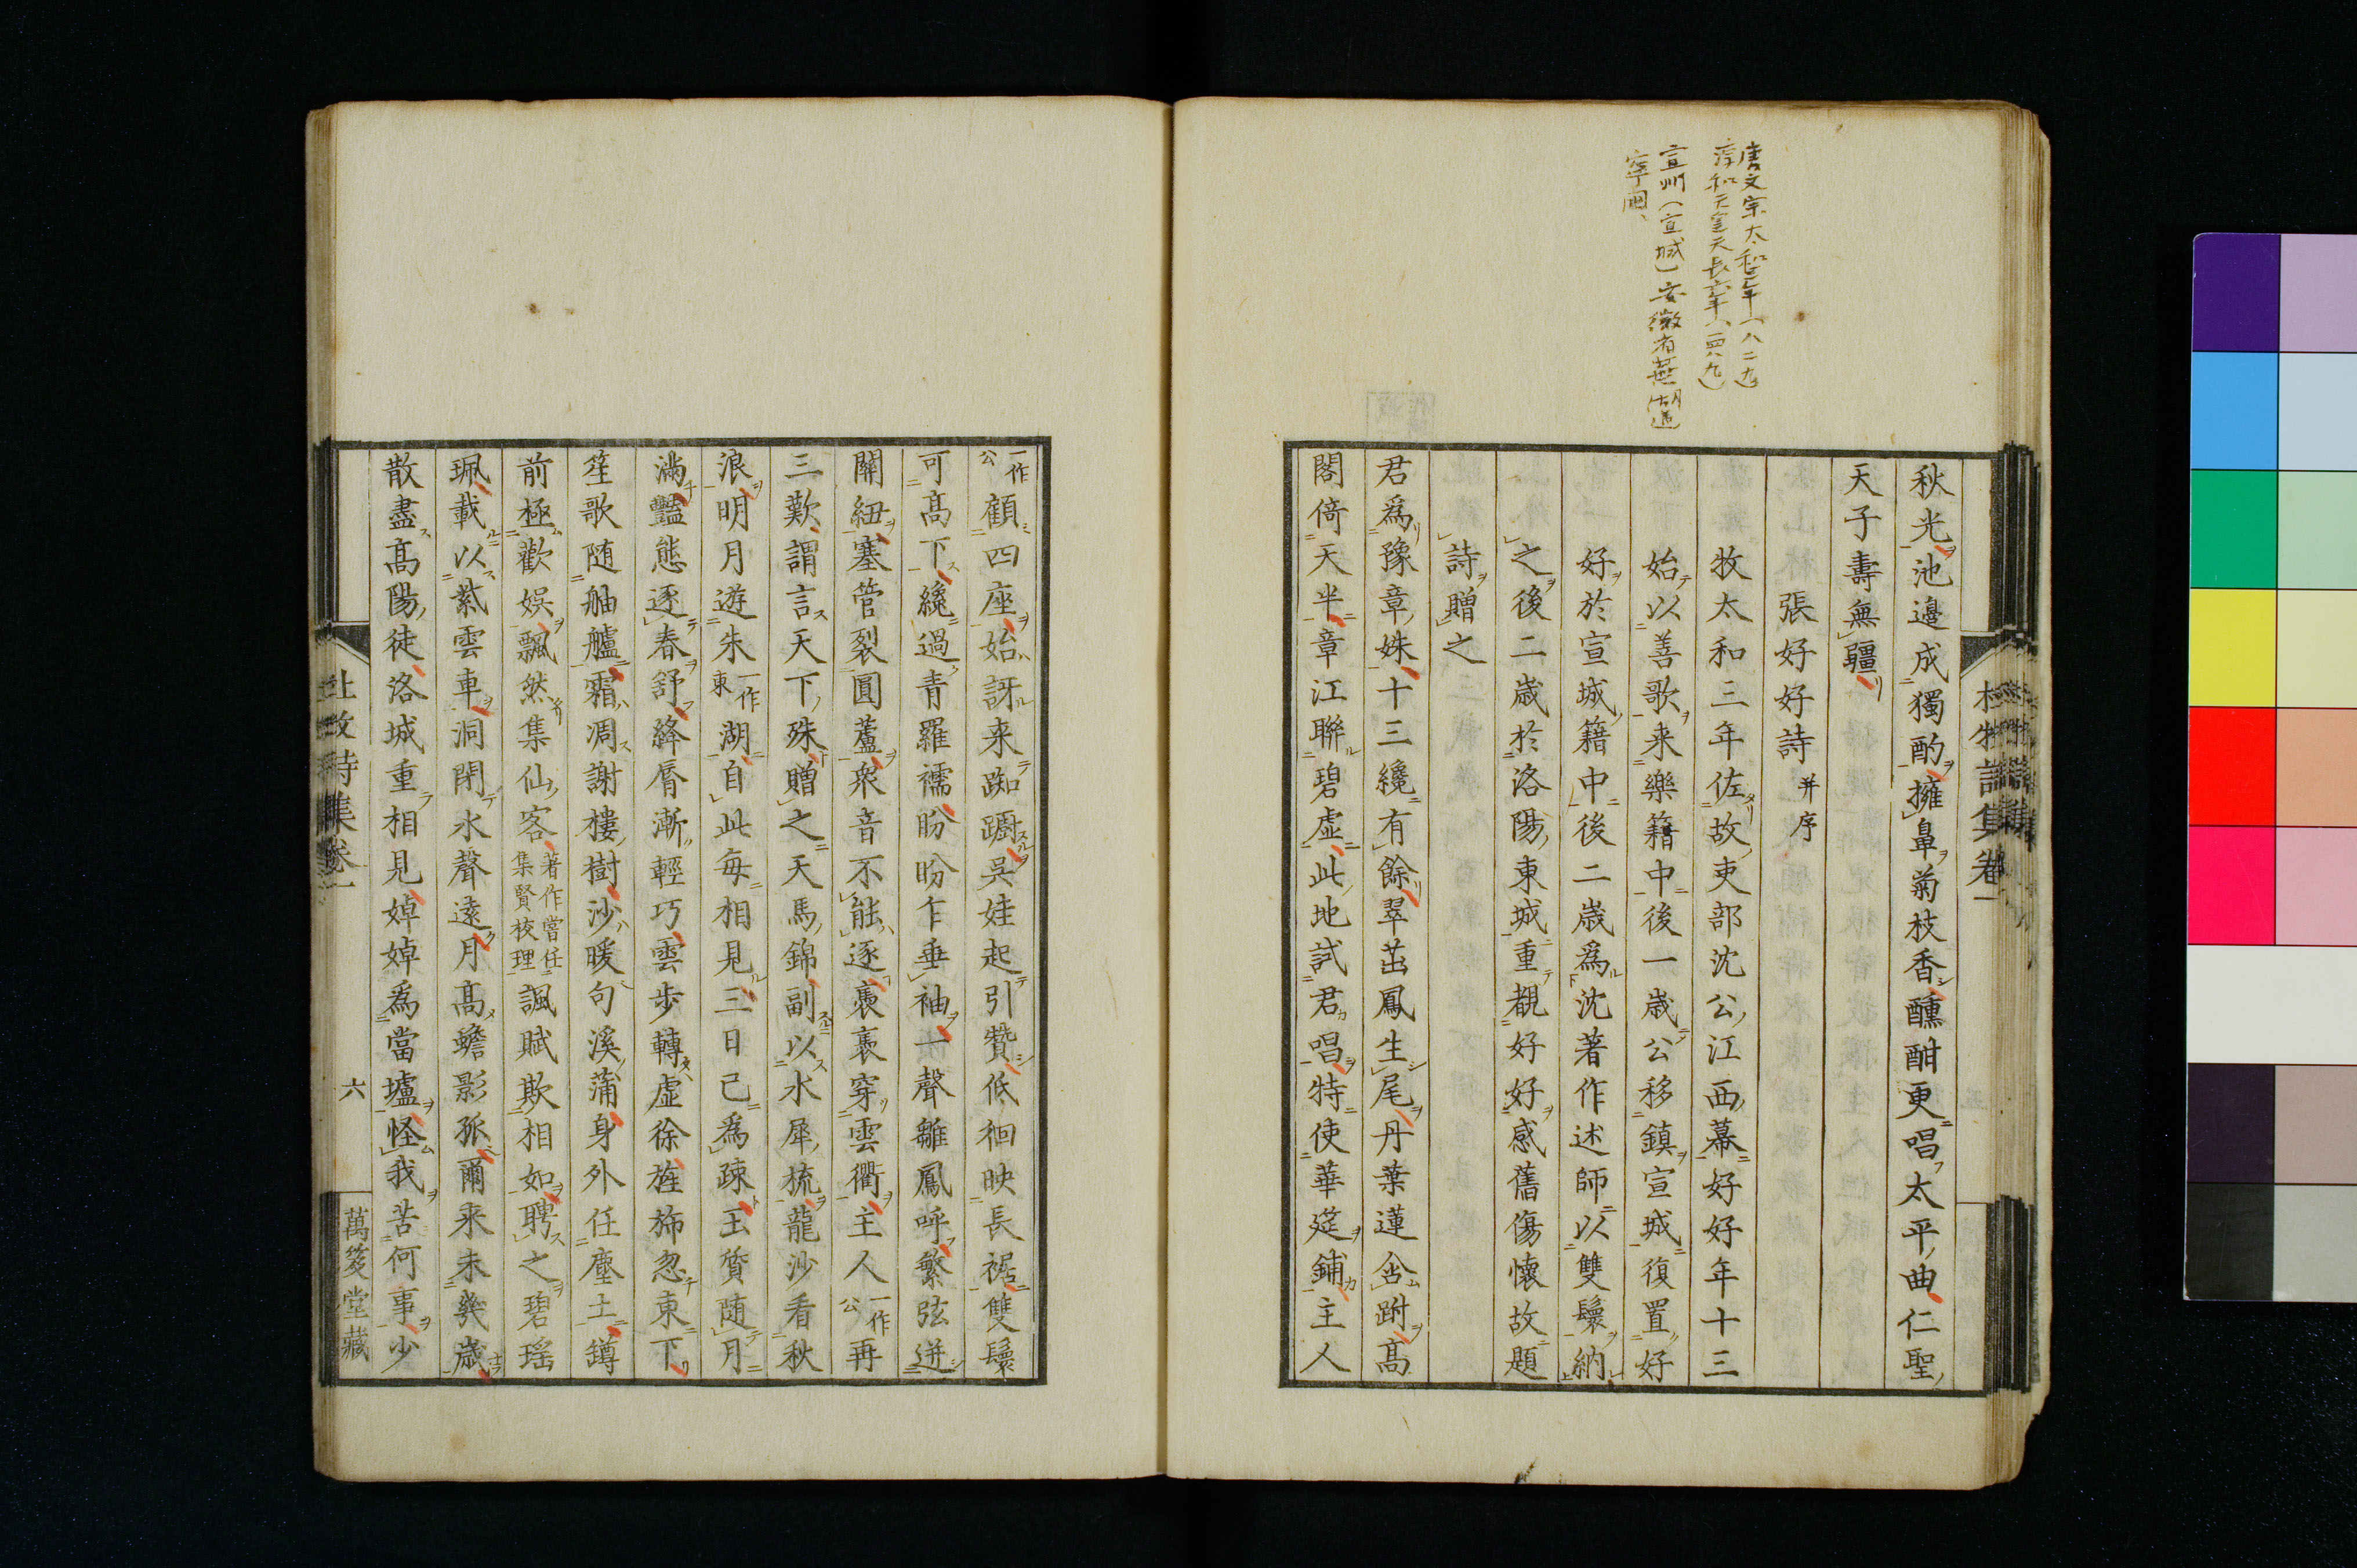 唐文宗太和三年(八二九)
淳和天皇天長六年(八二九)
宣州(宣城)安徽省蕪湖道
寧國、
杜牧詩集卷一
秋光池邊成獨酌擁鼻菊枝香醺酣更唱太平曲仁聖
天子壽無疆
張好好詩 并序
牧太和三年佐故吏部沈公江西幕好好年十三
始以善歌来樂籍中後一歳公移鎮宣城復置好
好於宣城籍中後二歳爲沈著作述師以雙鬟納
之後二歳於洛陽東城重覩好好感舊傷懷故題
詩贈之
君爲豫章姝十三纔有餘翠茁鳳生尾丹葉蓮含跗高
閣倚天半章江聯碧虛此地試君唱特使華筵鋪主人
一作公顧四座始訝来踟躕吳娃起引贊低徊映長裾雙鬟
可高下纔過青羅襦盼盼乍垂袖一聲雛鳳呼繁弦迸
關紐塞管裂圓蘆衆音不能逐裊裊穿雲衢主人一作公再
三歎謂言天下殊贈之天馬錦副以水犀梳龍沙看秋
浪明月遊朱一作東湖自此每相見三日已爲疎玉質随月
滿豔態逐春舒絳脣漸輕巧雲步轉虛徐旌旆忽東下
笙歌随舳艫霜凋謝樓樹沙暖句溪蒲身外任塵土罇
前極歡娯飄然集仙客著作嘗任集賢校理諷賦欺相如聘之碧瑶
珮載以紫雲車洞閉水聲遠月高蟾影孤爾来未幾歳
散盡高陽徒洛城重相見婥婥爲當壚怪我苦何事少
杜牧詩集卷一
六
萬笈堂藏